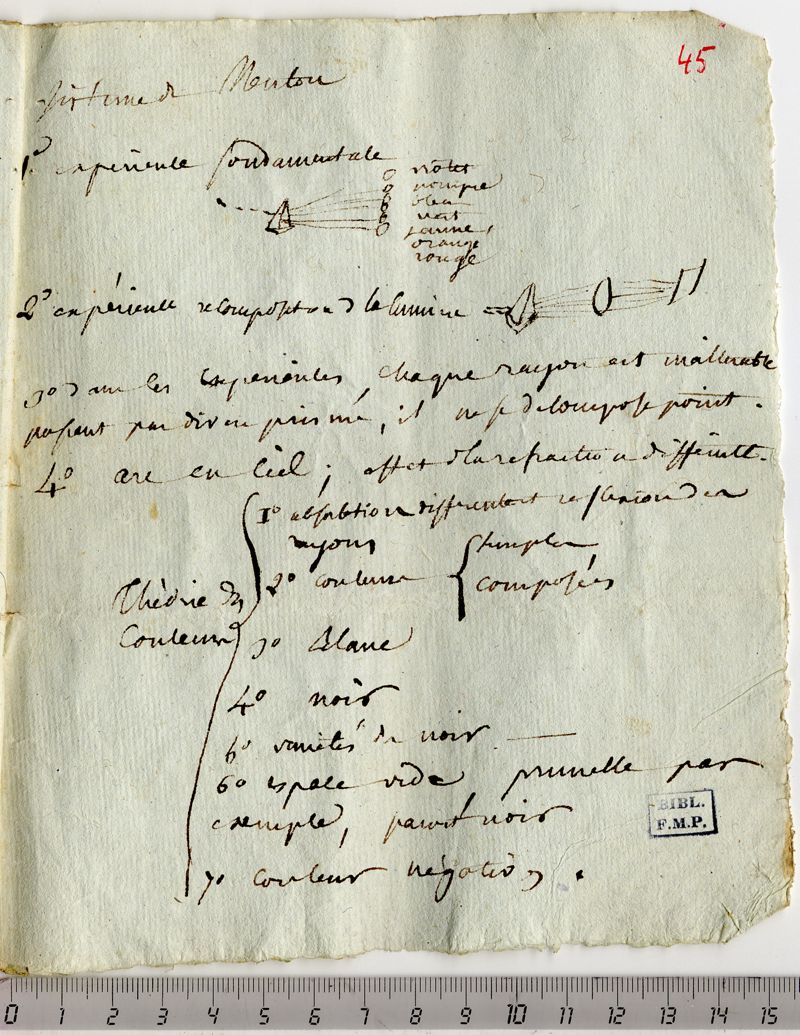 45
Sistème de Neuton
1° expérience fondamentale
violet
pourpre
bleu
vert
jaune,
orange
rouge
2° expérience recomposition d la lumière
3° dans les expériences, chaque rayon est inalterable
passant par divers prisme, il ne se decompose point.
4° arc en ciel; effet d la refraction différente.
1° absorbtion différente et reflexion des
rayons
2° couleurs simples
composées
Théorie des
Couleurs
3° Blanc
4° noir
5° variétés de noir
6° espace vide, prunelle par
exemple, parait noir
7° couleur négative.
BIBL.
F.M.P.
0 1 2 3 4 5 6 7 8 9 10 11 12 13 14 15